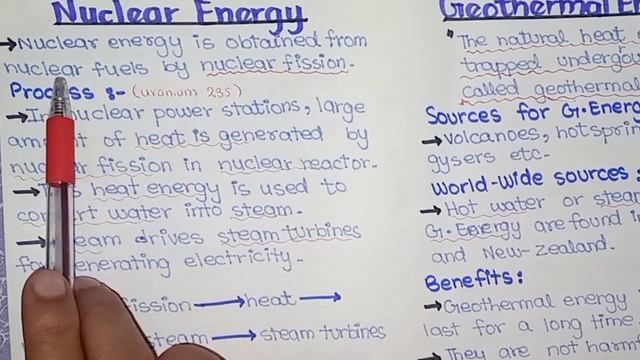 Nuclear Energy
→Nuclear energy is obtained from
nuclear fuels by nuclear fission.
Process :- (uranium 235)
→In nuclear power stations, large
of heat is generated by
nuclear fission in nuclear reactor.
→ heat energy is used to
water into steam.
→ drives steam turbines
generating electricity.
fission → heat →
steam → steam turbines
Geothermal
The natural heat
trapped
called geothermal
Sources for G.Energy
→volcanoes,
gysers etc.
World-wide sources :
→Hot water or
G.Energy are found
and New-zealand.
Benefits:
→Geothermal energy
last for a long time
→They are not